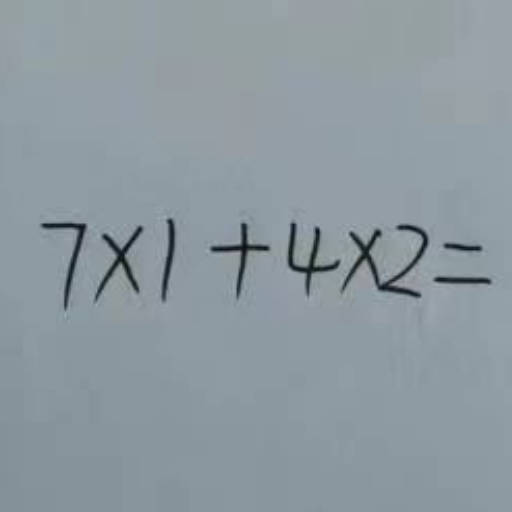 7×1+4×2=